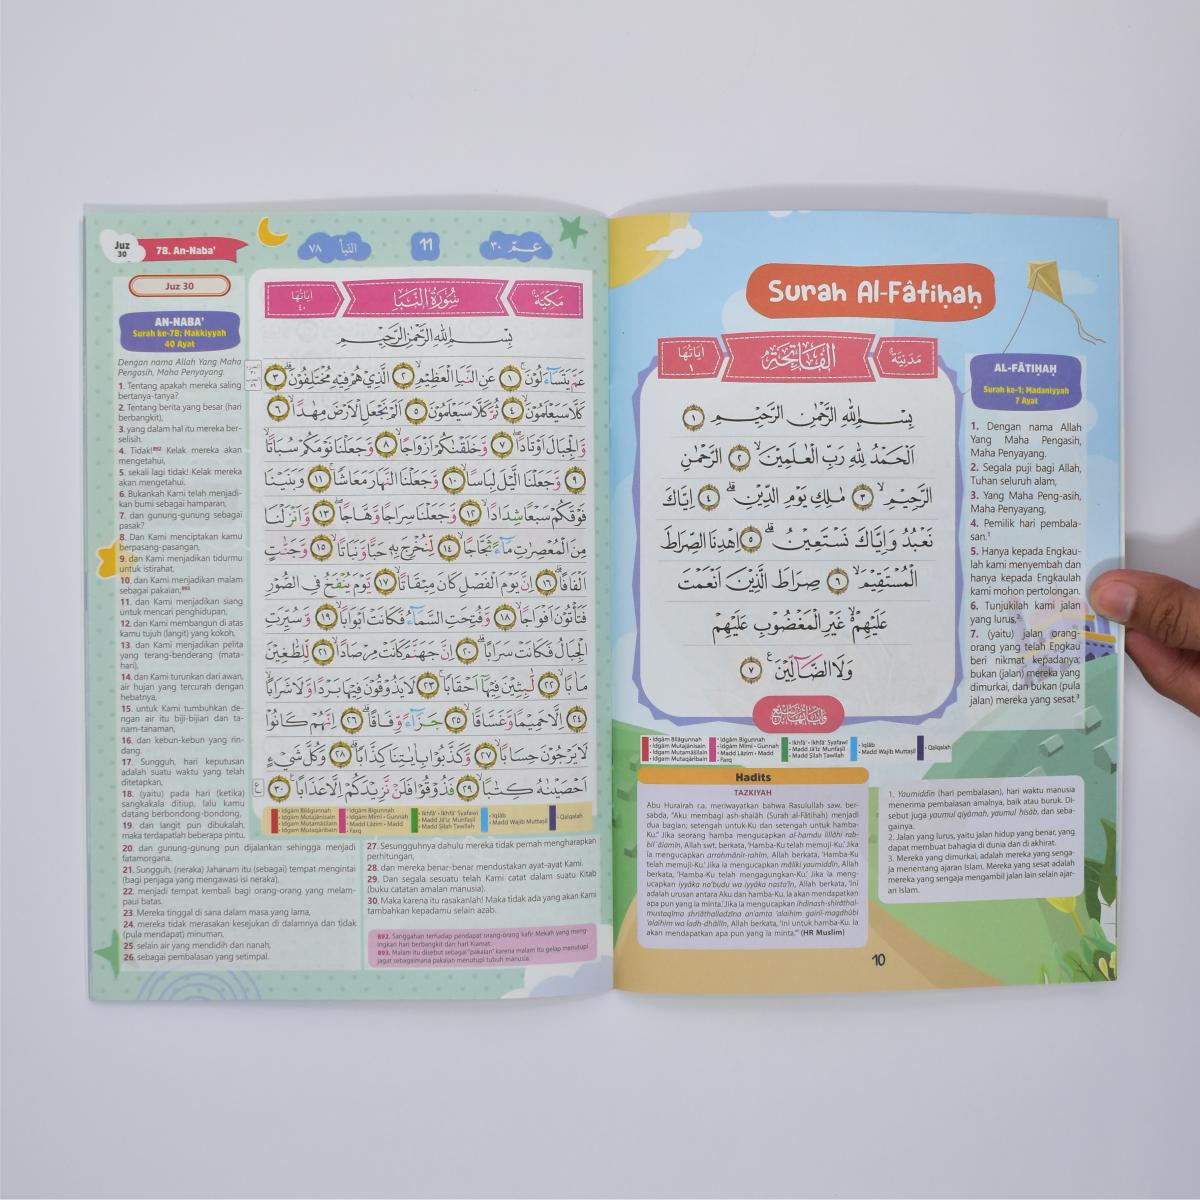 Surah Al-Fâtiḥaḥ
مدنيّة
الفاتحة
اٰيَاتُهَا
بِسْمِ اللّٰهِ الرَّحْمٰنِ الرَّحِيْمِ ١
اَلْحَمْدُ لِلّٰهِ رَبِّ الْعٰلَمِيْنَ ٢ الرَّحْمٰنِ
الرَّحِيْمِ ٣ مٰلِكِ يَوْمِ الدِّيْنِ ٤ اِيَّاكَ
نَعْبُدُ وَاِيَّاكَ نَسْتَعِيْنُ ٥ اِهْدِنَا الصِّرَاطَ
الْمُسْتَقِيْمَ ٦ صِرَاطَ الَّذِيْنَ اَنْعَمْتَ
عَلَيْهِمْ غَيْرِ الْمَغْضُوْبِ عَلَيْهِمْ
وَلَا الضَّاۤلِّيْنَ ٧
AL-FĀTIḤAḤ
Surah ke-1; Madaniyyah
7 Ayat
1. Dengan nama Allah
Yang Maha Pengasih,
Maha Penyayang.
2. Segala puji bagi Allah,
Tuhan seluruh alam,
3. Yang Maha Peng-asih,
Maha Penyayang,
4. Pemilik hari pembala-
san.¹
5. Hanya kepada Engkau-
lah kami menyembah dan
hanya kepada Engkaulah
kami mohon pertolongan.
6. Tunjukilah kami jalan
yang lurus,²
7. (yaitu) jalan orang-
orang yang telah Engkau
beri nikmat kepadanya;
bukan (jalan) mereka yang
dimurkai, dan bukan (pula
jalan) mereka yang sesat.³
• Idgām Bilāgunnah
• Idgām Mutajānisain
• Idgām Mutamāṡilain
• Idgam Mutaqāribain
• Idgām Bigunnah
• Idgām Mīmī - Gunnah
• Madd Lāzim - Madd
• Farq
• Ikhfā' - Ikhfā' Syafawī
• Madd Jā'iz Munfaṣil
• Madd Ṣilah Ṭawīlah
• Iqlāb
• Madd Wajib Muttaṣil
• Qalqalah
Hadits
TAZKIYAH
Abu Hurairah r.a. meriwayatkan bahwa Rasulullah saw. ber-
sabda, "Aku membagi ash-shalâh (Surah al-Fâtihah) menjadi
dua bagian; setengah untuk-Ku dan setengah untuk hamba-
Ku." Jika seorang hamba mengucapkan al-hamdu lillâhi rab-
bil 'âlamîn, Allah swt. berkata, 'Hamba-Ku telah memuji-Ku.' Jika
ia mengucapkan arrahmânir-rahîm, Allah berkata, 'Hamba-Ku
telah memuji-Ku.' Jika ia mengucapkan mâliki yaumiddîn, Allah
berkata, 'Hamba-Ku telah mengagungkan-Ku.' Jika ia meng-
ucapkan iyyâka na'budu wa iyyâka nasta'în, Allah berkata, 'Ini
adalah urusan antara Aku dan hamba-Ku. Ia akan mendapatkan
apa pun yang ia minta.' Jika ia mengucapkan ihdinash-shirâthal-
mustaqîma shirâthalladzîna an'amta 'alaihim gairil-magdhûbi
'alaihim wa ladh-dhâllîn, Allah berkata, 'Ini untuk hamba-Ku. Ia
akan mendapatkan apa pun yang ia minta.'" (HR Muslim)
1. Yaumiddin (hari pembalasan), hari waktu manusia
menerima pembalasan amalnya, baik atau buruk. Di-
sebut juga yaumul qiyāmah, yaumul hisāb, dan seba-
gainya.
2. Jalan yang lurus, yaitu jalan hidup yang benar, yang
dapat membuat bahagia di dunia dan di akhirat.
3. Mereka yang dimurkai, adalah mereka yang senga-
ja menentang ajaran Islam. Mereka yang sesat adalah
mereka yang sengaja mengambil jalan lain selain ajar-
an Islam.
10
Juz
30
78. An-Naba'
النبأ ٧٨
11
عمّ ٣٠
Juz 30
AN-NABA'
Surah ke-78; Makkiyyah
40 Ayat
Dengan nama Allah Yang Maha
Pengasih, Maha Penyayang.
1. Tentang apakah mereka saling
bertanya-tanya?
2. Tentang berita yang besar (hari
berbangkit),
3. yang dalam hal itu mereka ber-
selisih.
4. Tidak!⁸⁹² Kelak mereka akan
mengetahui,
5. sekali lagi tidak! Kelak mereka
akan mengetahui.
6. Bukankah Kami telah menjadi-
kan bumi sebagai hamparan,
7. dan gunung-gunung sebagai
pasak?
8. Dan Kami menciptakan kamu
berpasang-pasangan,
9. dan Kami menjadikan tidurmu
untuk istirahat,
10. dan Kami menjadikan malam
sebagai pakaian,⁸⁹³
11. dan Kami menjadikan siang
untuk mencari penghidupan,
12. dan Kami membangun di atas
kamu tujuh (langit) yang kokoh,
13. dan Kami menjadikan pelita
yang terang-benderang (mata-
hari),
14. dan Kami turunkan dari awan,
air hujan yang tercurah dengan
hebatnya,
15. untuk Kami tumbuhkan de-
ngan air itu biji-bijian dan ta-
nam-tanaman,
16. dan kebun-kebun yang rin-
dang.
17. Sungguh, hari keputusan
adalah suatu waktu yang telah
ditetapkan,
18. (yaitu) pada hari (ketika)
sangkakala ditiup, lalu kamu
datang berbondong-bondong,
19. dan langit pun dibukalah,
maka terdapatlah beberapa pintu,
مكيّة
سُوْرَةُ النَّبَأ
اٰيَاتُهَا ٤٠
بِسْمِ اللّٰهِ الرَّحْمٰنِ الرَّحِيْمِ
عَمَّ يَتَسَاۤءَلُوْنَ ١ عَنِ النَّبَاِ الْعَظِيْمِ ٢ الَّذِيْ هُمْ فِيْهِ مُخْتَلِفُوْنَ ٣
كَلَّا سَيَعْلَمُوْنَ ٤ ثُمَّ كَلَّا سَيَعْلَمُوْنَ ٥ اَلَمْ نَجْعَلِ الْاَرْضَ مِهٰدًا ٦
وَّالْجِبَالَ اَوْتَادًا ٧ وَّخَلَقْنٰكُمْ اَزْوَاجًا ٨ وَّجَعَلْنَا نَوْمَكُمْ سُبَاتًا
٩ وَّجَعَلْنَا الَّيْلَ لِبَاسًا ١٠ وَّجَعَلْنَا النَّهَارَ مَعَاشًا ١١ وَبَنَيْنَا
فَوْقَكُمْ سَبْعًا شِدَادًا ١٢ وَّجَعَلْنَا سِرَاجًا وَّهَّاجًا ١٣ وَّاَنْزَلْنَا
مِنَ الْمُعْصِرٰتِ مَاۤءً ثَجَّاجًا ١٤ لِّنُخْرِجَ بِهٖ حَبًّا وَّنَبَاتًا ١٥ وَّجَنّٰتٍ
اَلْفَافًا ١٦ اِنَّ يَوْمَ الْفَصْلِ كَانَ مِيْقَاتًا ١٧ يَّوْمَ يُنْفَخُ فِى الصُّوْرِ
فَتَأْتُوْنَ اَفْوَاجًا ١٨ وَّفُتِحَتِ السَّمَاۤءُ فَكَانَتْ اَبْوَابًا ١٩ وَّسُيِّرَتِ
الْجِبَالُ فَكَانَتْ سَرَابًا ٢٠ اِنَّ جَهَنَّمَ كَانَتْ مِرْصَادًا ٢١ لِّلطّٰغِيْنَ
مَاٰبًا ٢٢ لّٰبِثِيْنَ فِيْهَآ اَحْقَابًا ٢٣ لَا يَذُوْقُوْنَ فِيْهَا بَرْدًا وَّلَا شَرَابًا
٢٤ اِلَّا حَمِيْمًا وَّغَسَّاقًا ٢٥ جَزَاۤءً وِّفَاقًا ٢٦ اِنَّهُمْ كَانُوْا
لَا يَرْجُوْنَ حِسَابًا ٢٧ وَّكَذَّبُوْا بِاٰيٰتِنَا كِذَّابًا ٢٨ وَكُلَّ شَيْءٍ
اَحْصَيْنٰهُ كِتٰبًا ٢٩ فَذُوْقُوْا فَلَنْ نَّزِيْدَكُمْ اِلَّا عَذَابًا ٣٠
• Idgām Bilāgunnah
• Idgām Mutajānisain
• Idgam Mutamāṡilain
• Idgam Mutaqāribain
• Idgām Bigunnah
• Idgām Mīmī - Gunnah
• Madd Lāzim - Madd
• Farq
• Ikhfā' - Ikhfā' Syafawī
• Madd Jā'iz Munfaṣil
• Madd Ṣilah Ṭawīlah
• Iqlāb
• Madd Wajib Muttaṣil
• Qalqalah
20. dan gunung-gunung pun dijalankan sehingga menjadi
fatamorgana.
21. Sungguh, (neraka) Jahanam itu (sebagai) tempat mengintai
(bagi penjaga yang mengawasi isi neraka),
22. menjadi tempat kembali bagi orang-orang yang melam-
paui batas.
23. Mereka tinggal di sana dalam masa yang lama,
24. mereka tidak merasakan kesejukan di dalamnya dan tidak
(pula mendapat) minuman,
25. selain air yang mendidih dan nanah,
26. sebagai pembalasan yang setimpal.
27. Sesungguhnya dahulu mereka tidak pernah mengharapkan
perhitungan,
28. dan mereka benar-benar mendustakan ayat-ayat Kami.
29. Dan segala sesuatu telah Kami catat dalam suatu Kitab
(buku catatan amalan manusia).
30. Maka karena itu rasakanlah! Maka tidak ada yang akan Kami
tambahkan kepadamu selain azab.
892. Sanggahan terhadap pendapat orang-orang kafir Mekah yang meng-
ingkari hari berbangkit dan hari Kiamat.
893. Malam itu disebut sebagai "pakaian" karena malam itu gelap menutupi
jagat sebagaimana pakaian menutupi tubuh manusia.